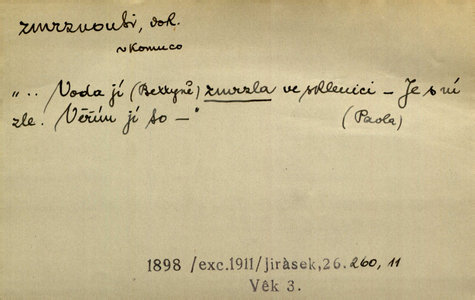 zmrznouti, dok.
v komuco
".. Voda jí (Bertyně) zmrzla ve sklenici – Je s ní
zle. Věřím jí to –" (Paola)
1898 /exc.1911/jiràsek,26.260, 11
Věk 3.